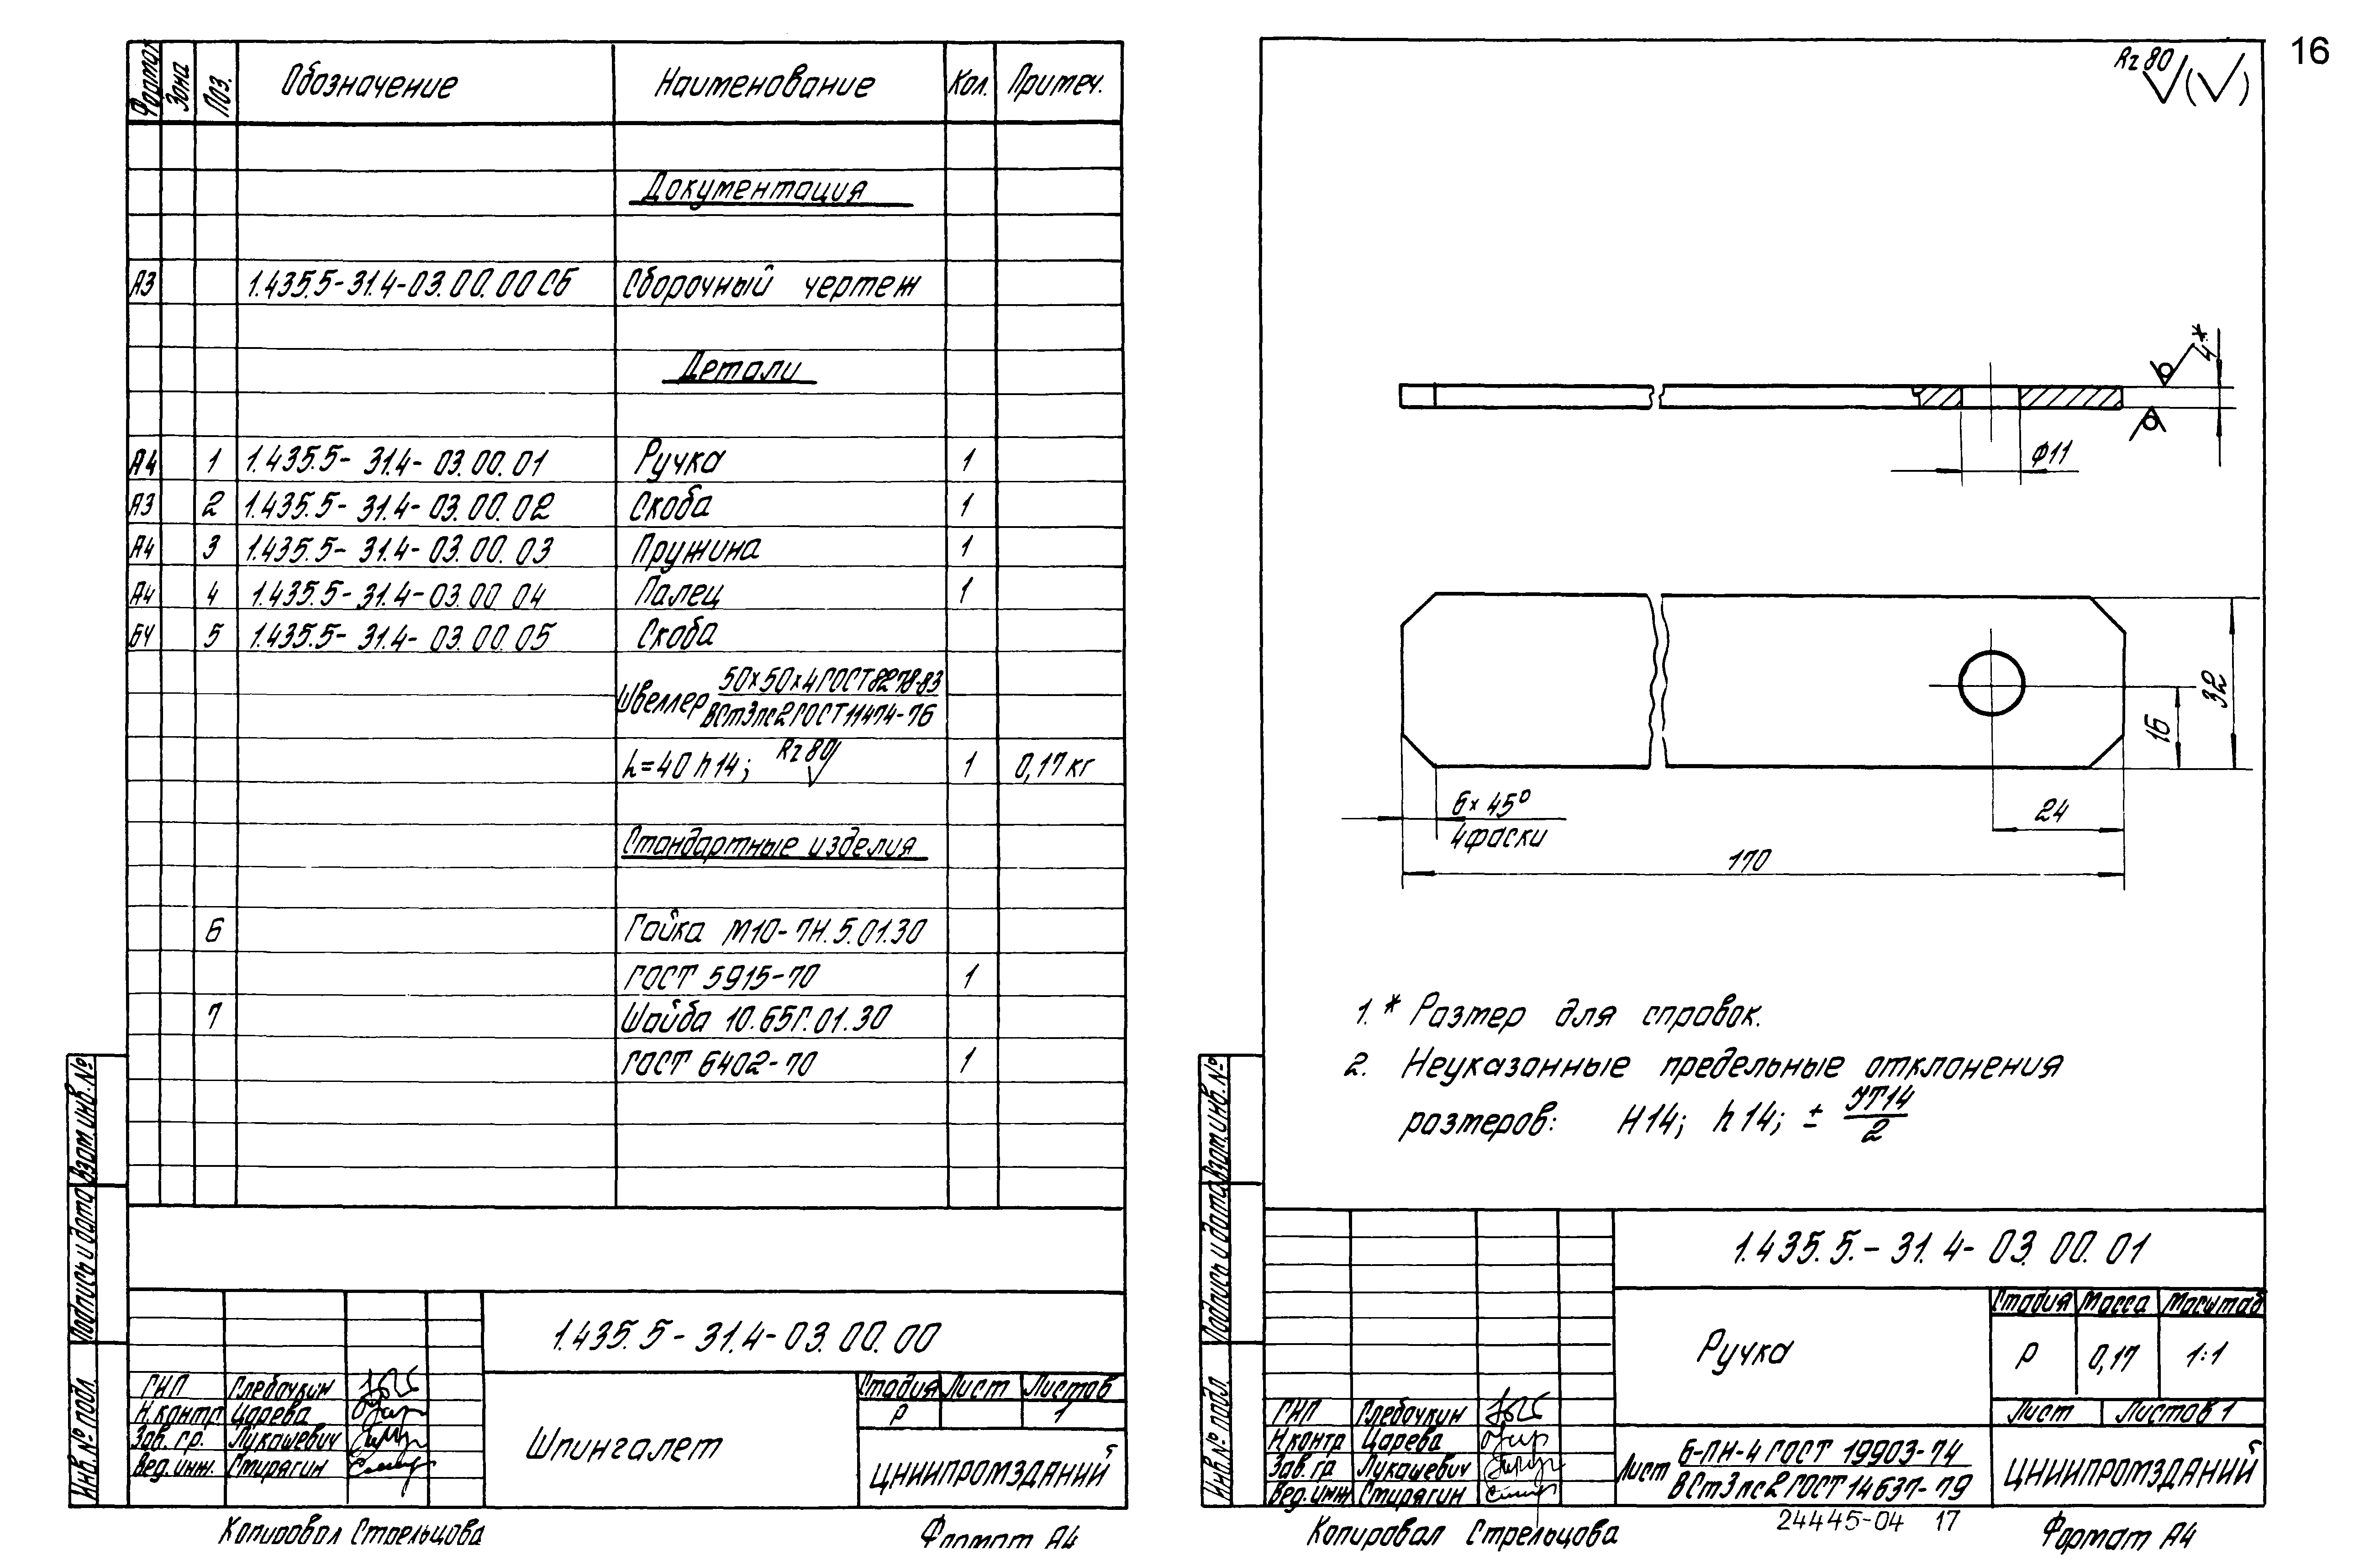 16
Формат Зона Поз. Обозначение Наименование Кол. Примеч.
Документация
А3 1.435.5-31.4-03.00.00СБ Сборочный чертеж
Детали
А4 1 1.435.5-31.4-03.00.01 Ручка 1
А3 2 1.435.5-31.4-03.00.02 Скоба 1
А4 3 1.435.5-31.4-03.00.03 Пружина 1
А4 4 1.435.5-31.4-03.00.04 Палец 1
БЧ 5 1.435.5-31.4-03.00.05 Скоба
50×50×4 ГОСТ 8278-83
Швеллер
ВСт3пс2 ГОСТ 11474-76
h=40 h14; Rz80 1 0,17кг
Стандартные изделия
6 Гайка М10-7Н.5.01.30
ГОСТ 5915-70 1
7 Шайба 10.65Г.01.30
ГОСТ 6402-70 1
Взам. инв. №
Подпись и дата
Инв. № подл.
1.435.5-31.4-03.00.00
ГИП Глебочкин
Н.контр Царева
Зав. гр. Лукашевич
Вед. инж. Стирягин
Шпингалет
Стадия Лист Листов
Р 1
ЦНИИПРОМЗДАНИЙ
Копировал Стрельцова
Формат А4
Rz80 (√)
4*
Ф11
32
16
6×45°
4 фаски
24
170
1. * Размер для справок.
2. Неуказанные предельные отклонения
размеров: H14; h14; ± УТ14/2
Взам. инв. №
Подпись и дата
Инв. № подл.
1.435.5.-31.4-03.00.01
Стадия Масса Масштаб
Ручка Р 0,17 1:1
Лист Листов 1
ГИП Глебочкин
Н.контр Царева
Зав. гр Лукашевич
Вед. инж Стирягин
Б-ПН-4 ГОСТ 19903-74
Лист
ВСт3пс2 ГОСТ 14637-79
ЦНИИПРОМЗДАНИЙ
24445-04 17
Копировал Стрельцова
Формат А4